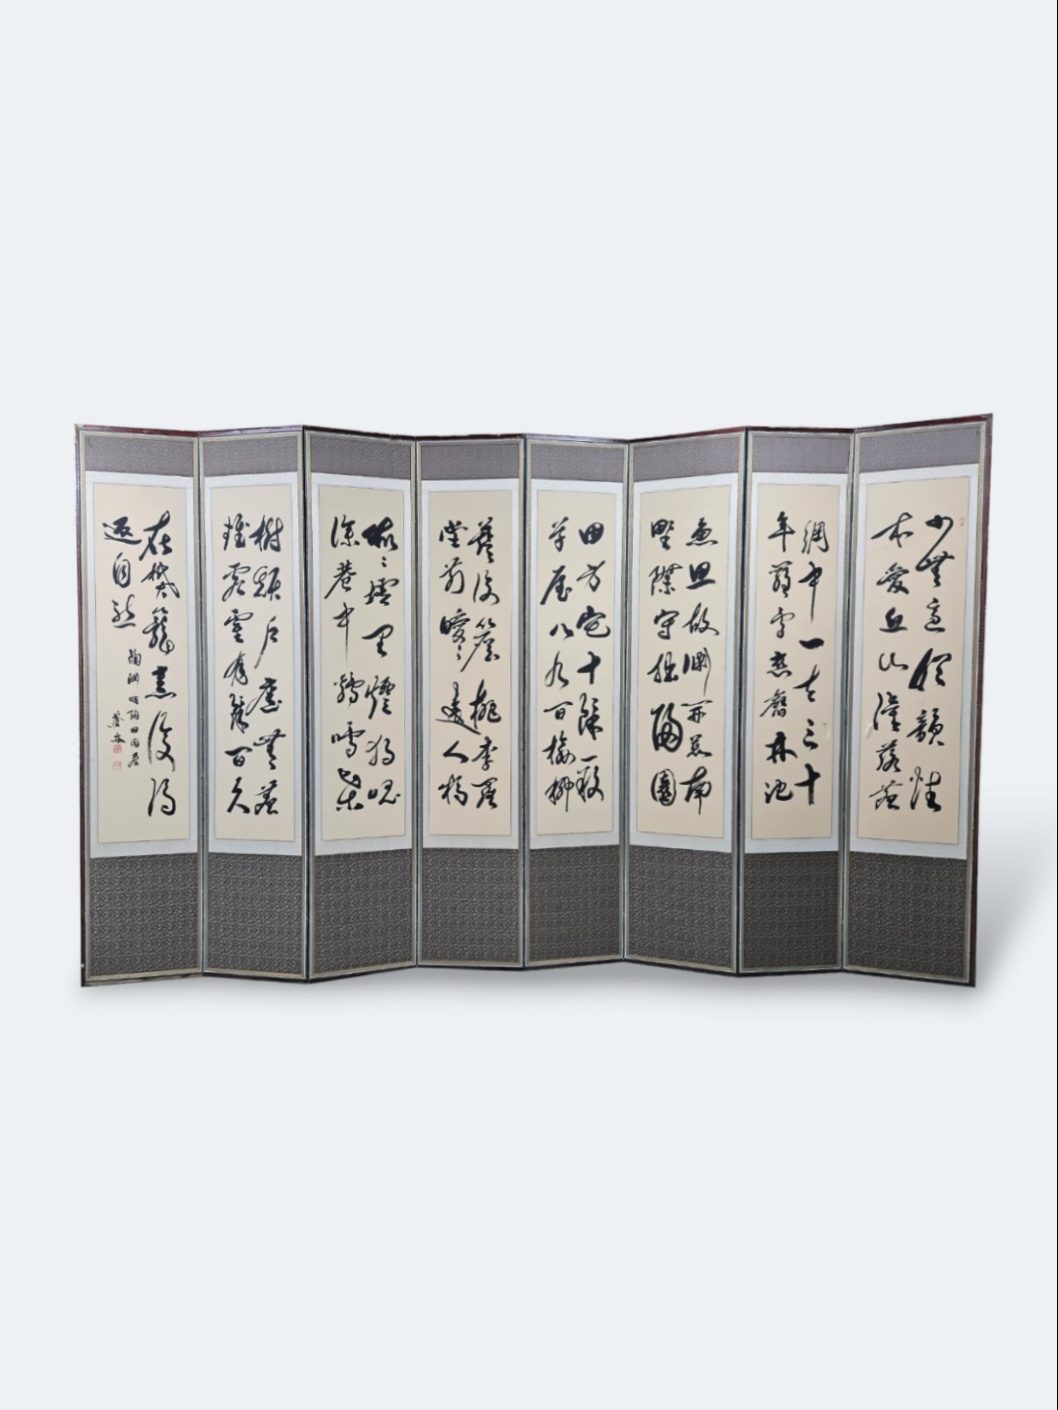 少無適俗韻性
本愛丘山誤落塵
網中一去三十
年羈鳥戀舊林池
魚思故淵開荒南
野際守拙歸園
田方宅十餘畝
草屋八九間榆柳
蔭後簷桃李羅
堂前曖〻遠人村
依〻墟里煙狗吠
深巷中鷄鳴桑
樹顚戶庭無塵
雜虛室有餘閒久
在樊籠裏復得
返自然
陶淵明歸田園居